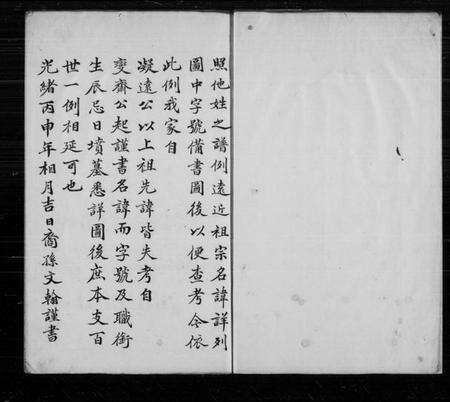 照他姓之譜例遠近祖宗名諱詳列
圖中字號備書圖後以便查考令依
此例我家自
凝遠公以上祖先諱皆失考自
變齋公起謹書名諱而字號及職銜
生辰忌日墳墓悉詳圖後庶本支百
世一例相延可也
光緒丙申年相月吉日裔孫文翰謹書